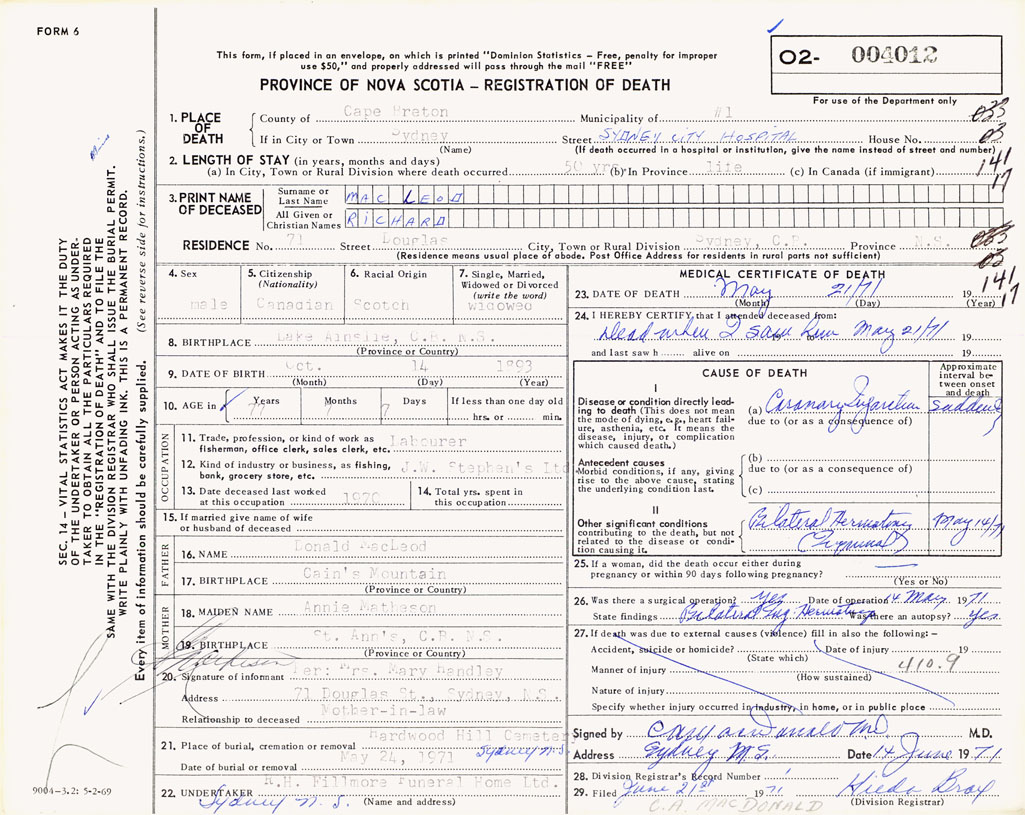 FORM 6
This form, if placed in an envelope, on which is printed "Dominion Statistics – Free, penalty for improper
use $50," and properly addressed will pass through the mail "FREE"
PROVINCE OF NOVA SCOTIA – REGISTRATION OF DEATH
O2- 004012
For use of the Department only
1. PLACE OF DEATH
County of Cape Breton Municipality of #1
033
If in City or Town Sydney Street SYDNEY CITY HOSPITAL House No.
03
(Name) (If death occurred in a hospital or institution, give the name instead of street and number)
2. LENGTH OF STAY (in years, months and days)
141
(a) In City, Town or Rural Division where death occurred 50 yrs (b) In Province life (c) In Canada (if immigrant)
17
3. PRINT NAME OF DECEASED
Surname or Last Name MAC LEOD
All Given or Christian Names RICHARD
RESIDENCE No. 71 Street Douglas City, Town or Rural Division Sydney, C.B. Province N.S.
033
(Residence means usual place of abode. Post Office Address for residents in rural parts not sufficient)
03
141
17
4. Sex
male
5. Citizenship
(Nationality)
Canadian
6. Racial Origin
Scotch
7. Single, Married,
Widowed or Divorced
(write the word)
widowed
8. BIRTHPLACE Lake Ainslie, C.B. N.S.
(Province or Country)
9. DATE OF BIRTH Oct. 14 1893
(Month) (Day) (Year)
10. AGE in Years Months Days If less than one day old
77 7 7 hrs. or min.
OCCUPATION
11. Trade, profession, or kind of work as Labourer
fisherman, office clerk, sales clerk, etc.
12. Kind of industry or business, as fishing, J.W. Stephen's Ltd
bank, grocery store, etc.
13. Date deceased last worked
at this occupation 1970
14. Total yrs. spent in
this occupation
15. If married give name of wife
or husband of deceased
FATHER
16. NAME Donald MacLeod
17. BIRTHPLACE Cain's Mountain
MOTHER
18. MAIDEN NAME Annie Matheson
19. BIRTHPLACE St. Ann's, C.B. N.S.
(Province or Country)
20. Signature of informant Per: Mrs. Mary Handley
Address 71 Douglas St., Sydney, N.S.
Relationship to deceased Mother-in-law
21. Place of burial, cremation or removal Hardwood Hill Cemetery
Sydney N.S.
Date of burial or removal May 24, 1971
22. UNDERTAKER R.H. Fillmore Funeral Home Ltd.
Sydney N.S. (Name and address)
MEDICAL CERTIFICATE OF DEATH
23. DATE OF DEATH May 21/71 19
(Month) (Day) (Year)
24. I HEREBY CERTIFY, that I attended deceased from:
Dead when I saw him May 21/71 19
and last saw h alive on 19
CAUSE OF DEATH
Approximate
interval be-
tween onset
and death
I
Disease or condition directly lead-
ing to death (This does not mean
the mode of dying, e.g., heart fail-
ure, asthenia, etc. It means the
disease, injury, or complication
which caused death.)
(a) Coronary Infarction Sudden
due to (or as a consequence of)
Antecedent causes
Morbid conditions, if any, giving
rise to the above cause, stating
the underlying condition last.
(b)
due to (or as a consequence of)
(c)
II
Other significant conditions
contributing to the death, but not
related to the disease or condi-
tion causing it.
Bilateral May 14/71
25. If a woman, did the death occur either during
pregnancy or within 90 days following pregnancy?
(Yes or No)
26. Was there a surgical operation? Yes Date of operation 14 May 1971
State findings Bilateral Ing. Was there an autopsy? Yes.
27. If death was due to external causes (violence) fill in also the following:–
Accident, suicide or homicide? Date of injury 19
(State which)
Manner of injury 410.9
(How sustained)
Nature of injury
Specify whether injury occurred in industry, in home, or in public place
Signed by M.D.
Address Sydney N.S. Date 14 June 1971
28. Division Registrar's Record Number
29. Filed June 21st 1971
(Division Registrar)
C.A. MACDONALD
SEC. 14 – VITAL STATISTICS ACT MAKES IT THE DUTY
OF THE UNDERTAKER OR PERSON ACTING AS UNDER-
TAKER TO OBTAIN ALL THE PARTICULARS REQUIRED
IN THE "REGISTRATION OF DEATH" AND TO FILE THE
SAME WITH THE DIVISION REGISTRAR WHO SHALL ISSUE THE BURIAL PERMIT.
WRITE PLAINLY WITH UNFADING INK. THIS IS A PERMANENT RECORD.
Every item of information should be carefully supplied. (See reverse side for instructions.)
9004-3.2: 5-2-69